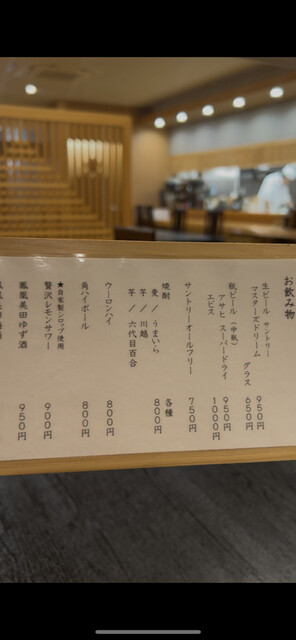 お飲み物
生ビール サントリー 950円
マスターズドリーム
グラス 650円
瓶ビール(中瓶)
アサヒ スーパードライ 950円
エビス 1000円
サントリーオールフリー 750円
焼酎 各種
麦/うまいら 800円
芋/川越
芋/六代目百合
ウーロンハイ 800円
角ハイボール 800円
★自家製シロップ使用
贅沢レモンサワー 900円
鳳凰美田ゆず酒 950円